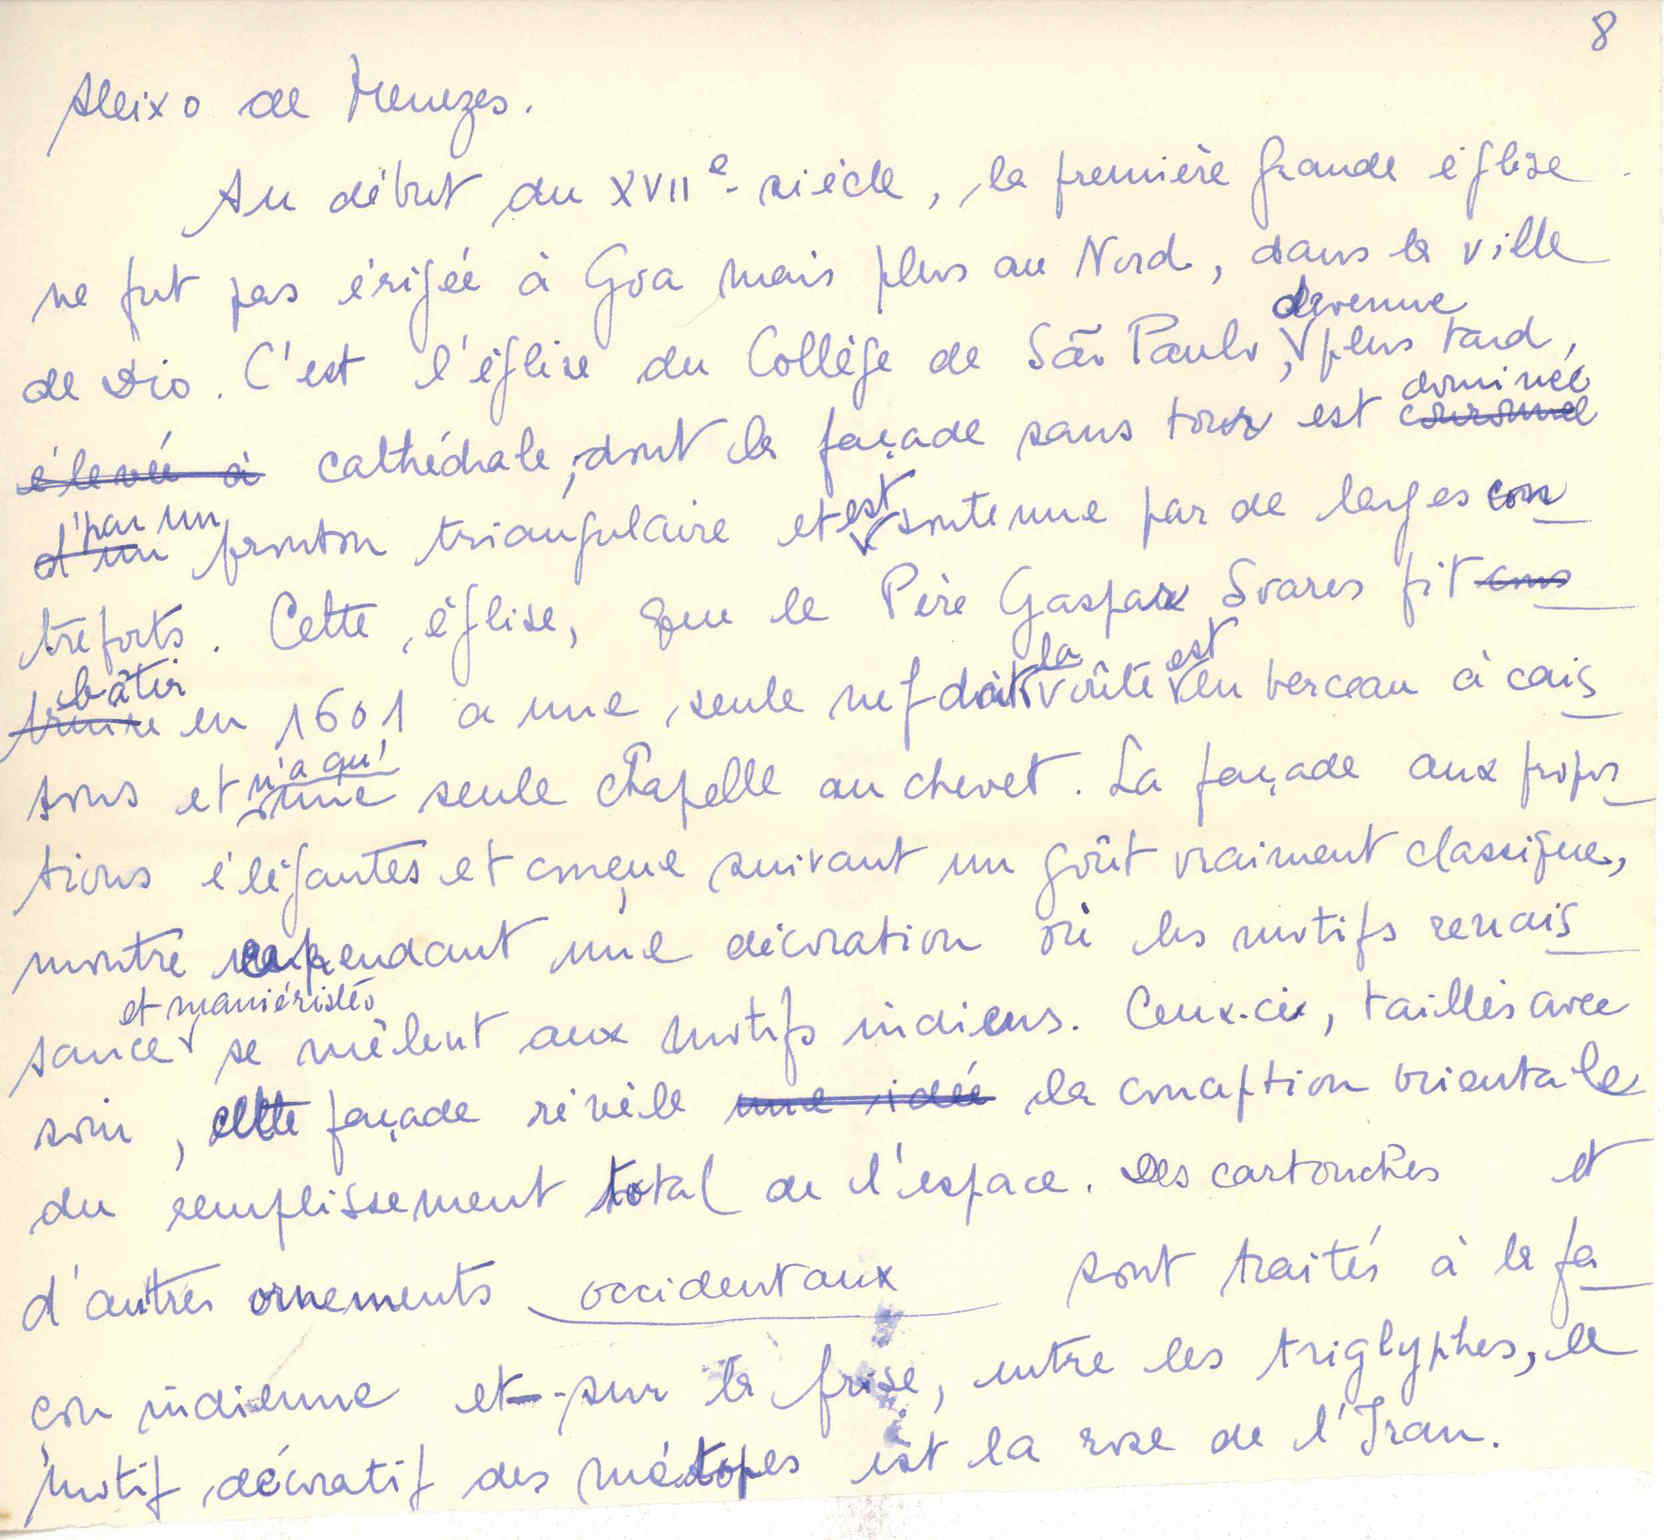 8
Aleixo de Menezes.
Au début du XVIIe siècle, la première grande église
ne fut pas érigée à Goa mais plus au Nord, dans la ville
devenue
de Dio. C'est l'église du Collège de São Paulo, plus tard,
dominée
élevée à cathédrale, dont la façade sans tour est couronnée
par un est
d'un fronton triangulaire et soutenue par de larges con
treforts. Cette église, que le Père Gaspar Soares fit cons
bâtir la est
truire en 1601 a une seule nef dont voûte en berceau à cais
n'a qu'
sons et une seule chapelle au chevet. La façade aux propor
tions élégantes et conçue suivant un goût vraiment classique,
montre cependant une décoration où les motifs renais
et maniéristes
sance se mêlent aux motifs indiens. Ceux-ci, taillés avec
soin, cette façade révèle une idée la conception orientale
du remplissement total de l'espace. Des cartouches et
d'autres ornements occidentaux sont traités à la fa
çon indienne et sur la frise, entre les triglyphes, le
motif décoratif des métopes est la rose de l'Iran.